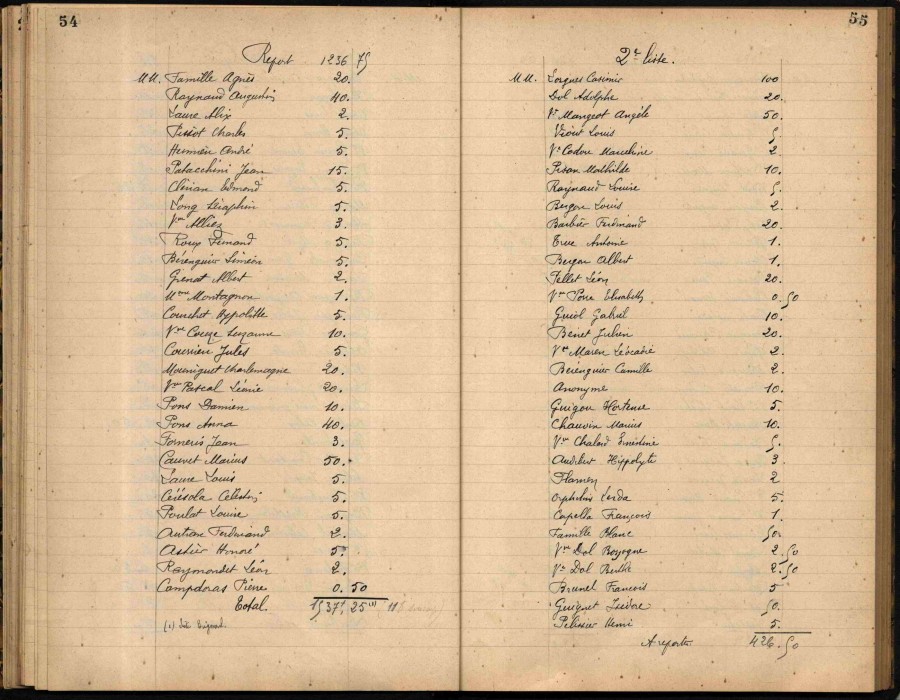 54
Report 1236 75
MM. Famille Agnès 20.
Raynaud Augustin 40.
Laure Alix 2.
Pissot Charles 5.
Hermieu André 5.
Patacchini Jean 15.
Clérian Edmond 5.
Long Séraphin 5.
Vve Alliez 3.
Roux Fernand 5.
Bérenguier Siméon 5.
Grenat Albert 2.
Mme Montagnon 1.
Couchet Hyppolitte 5.
Vve Couze Suzanne 10.
Courrieu Jules 5.
Mouniguet Charlemagne 20.
Vve Pascal Léonie 20.
Pons Damien 10.
Pons Anna 40.
Forneris Jean 3.
Cauvet Marius 50.
Laure Louis 5.
Cérésola Célestin 5.
Poulat Louise 5.
Autran Ferdinand 2.
Astier Honoré 5.
Raymondet Léon 2.
Campdoras Pierre 0.50
Total. 1537, 25 (1)
(1)
55
2e liste.
MM. Lorgues Casimir 100
Dol Adolphe 20.
Ve Mangeot Angèle 50.
Louis 5.
Ve Codou Marceline 2
Pisan Mathilde 10.
Raynaud Louise 5.
Bergon Louis 2.
Barbier Ferdinand 20.
True Antoine 1.
Bergon Albert 1.
Pellet Léon 20.
Vve Pons Elisabeth 0.50
Guiol Gabriel 10.
Benet Julien 20.
Vve Maren Léocadie 2.
Bérenguier Camille 2.
Anonyme 10.
Guigou Hortense 5.
Chauvin Marius 10.
Vve Chalard Ernestine 5.
Audibert Hippolyte 3
Flamen 2
Orphelins Lerda 5.
Capella François 1.
Famille Blanc 50.
Vve Dol 2.50
Ve Dol Berthe 2.50
Brunel Francois 5
Guignet Isidore 50.
Pelissier Henri 5.
A reporter 426.50